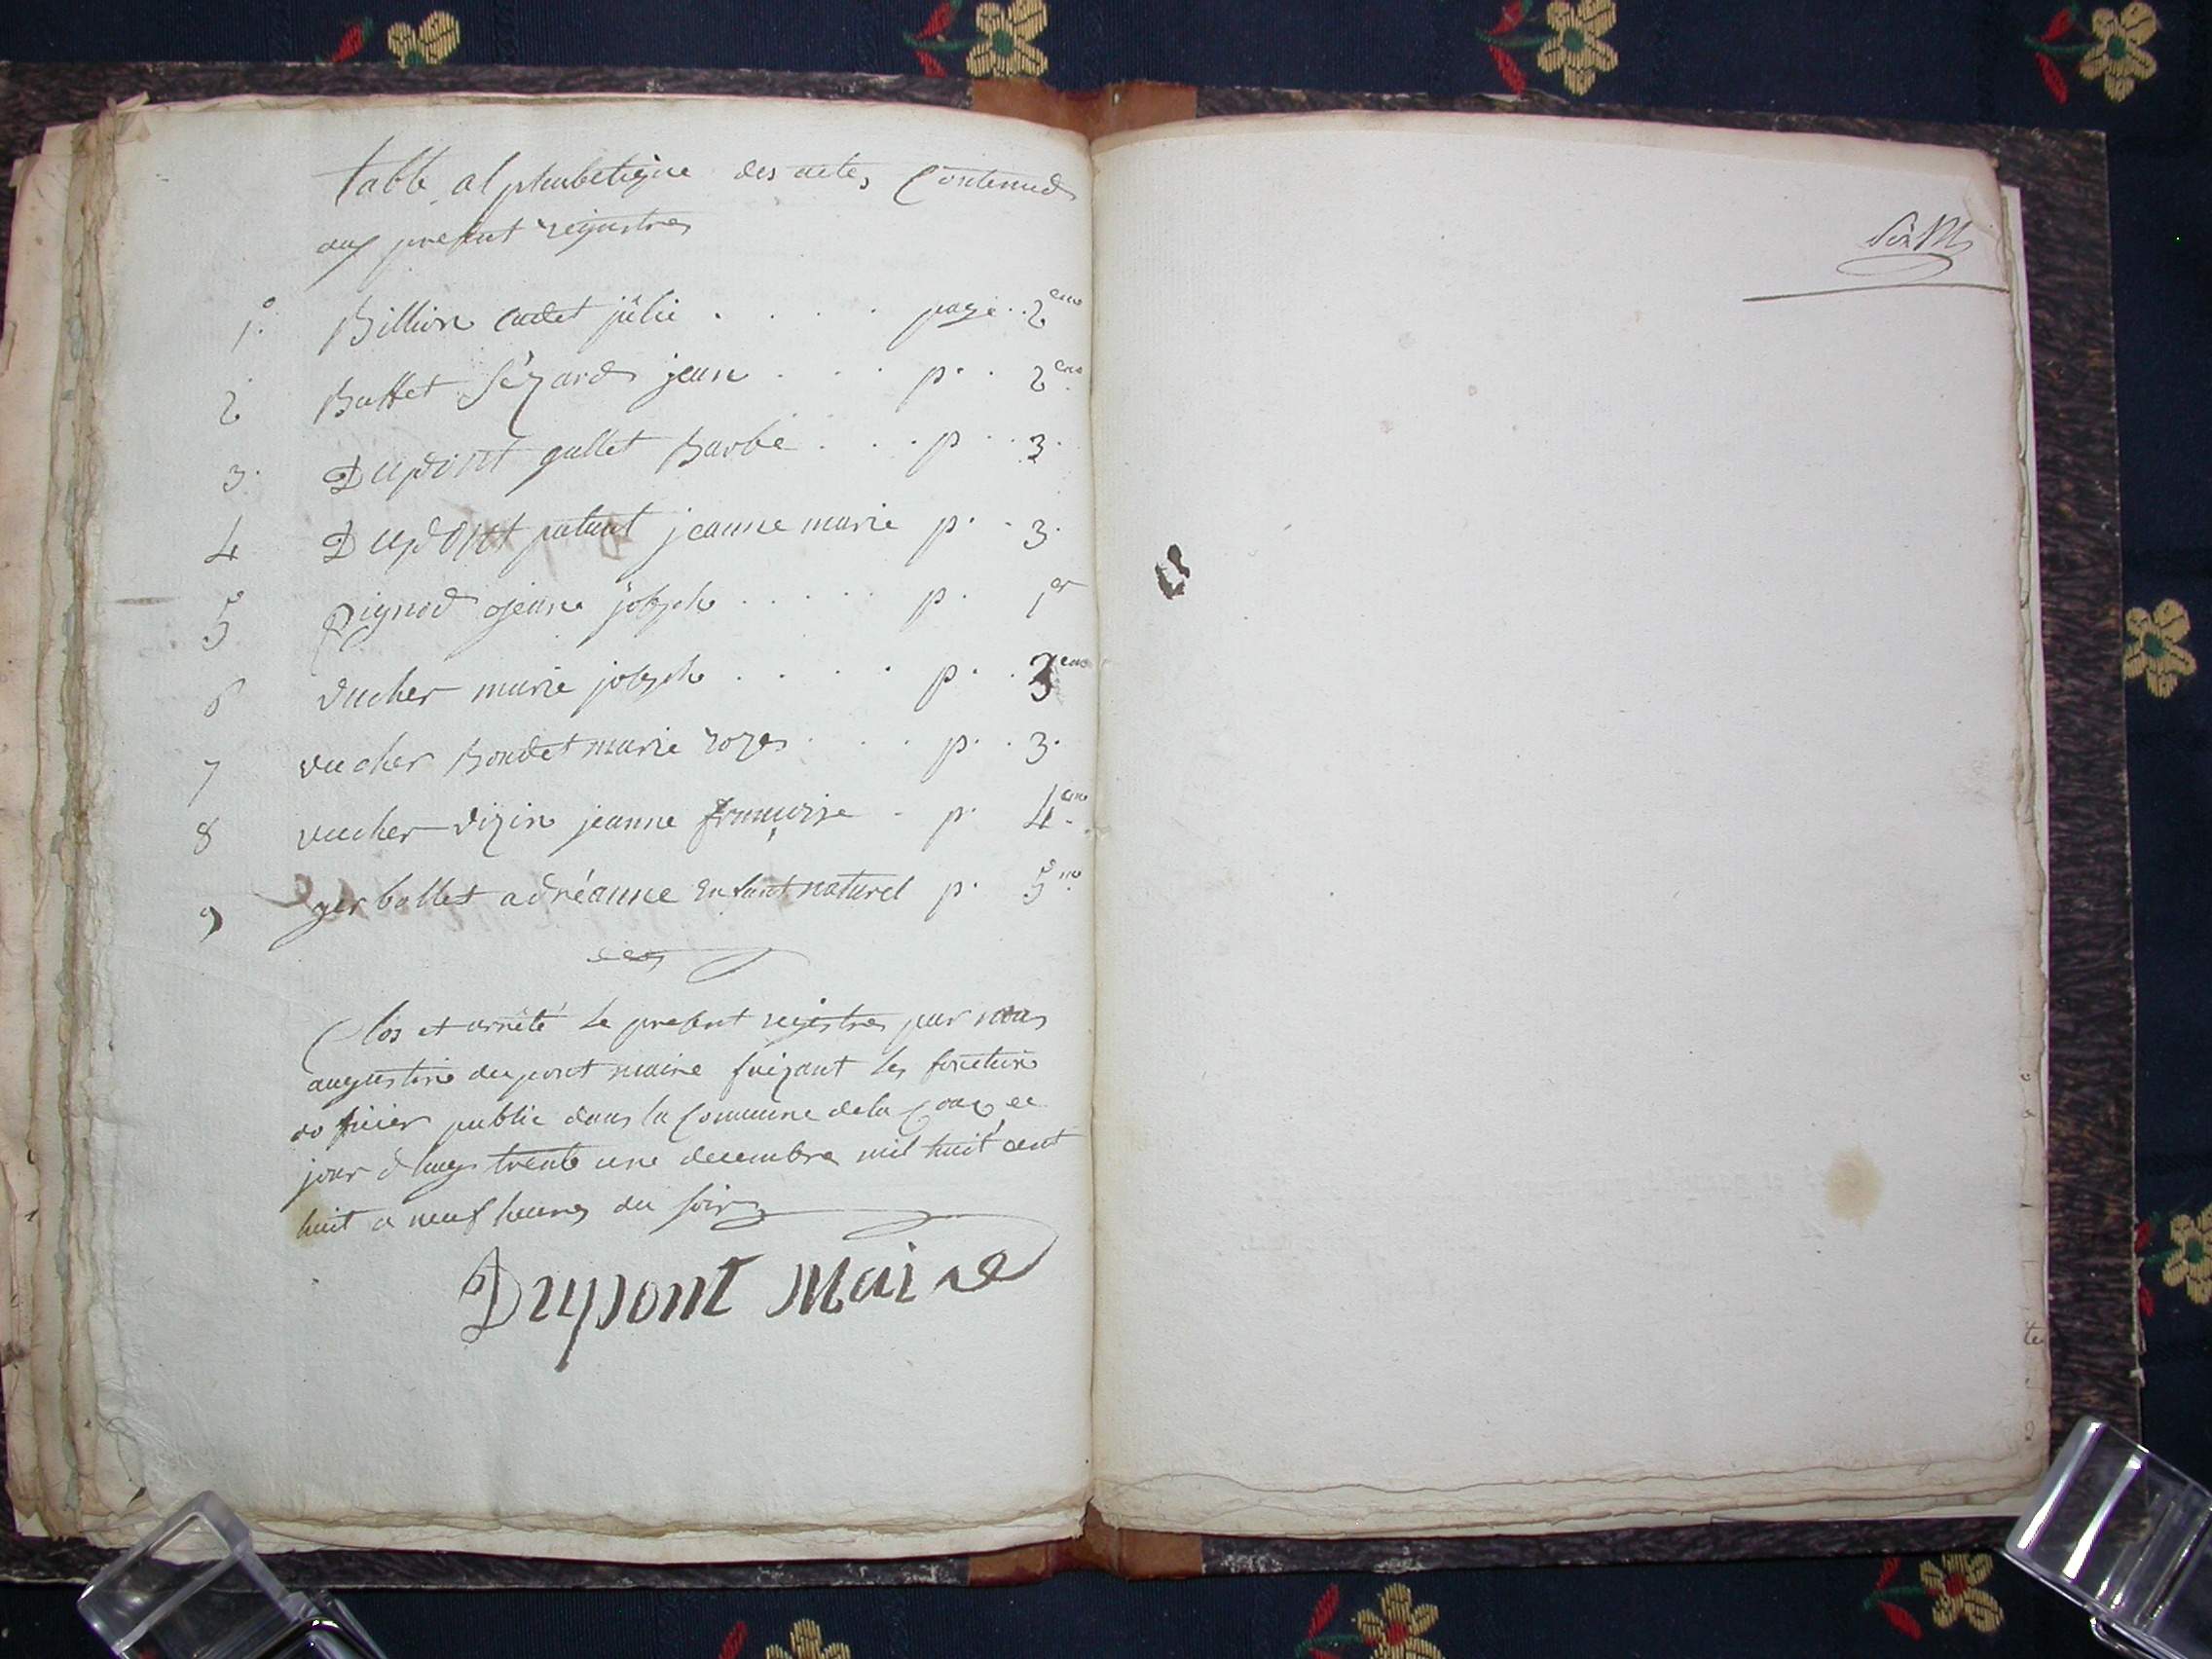 table alphabetique des actes Contenud
aux present registres
1° Billion cadet julie . . . . . page . . 2eme
2 Buffet Sézard jean . . . p. . 2eme
3. Dupont gallet Barbe . . . p . . 3.
4 Dupont patant jeanne marie p. . 3.
5 Pignod jean joseph . . . . . p. 1er
6 vucher marie joseph . . . . . p. . 3eme
7 vucher Boudet marie rozes . . . p. . 3.
8 vucher dizin jeanne françoise . p. 4eme
9 gerbollet adréanne Enfant naturel p. 5me
Clos et arrêté le present registres par nous
augustin dupont maire faizant les fonction
doficier public dans la Commune de la ce
jour dhuy trente une decembre mil huit cent
huit a neuf heures du soir
Dupont Maire